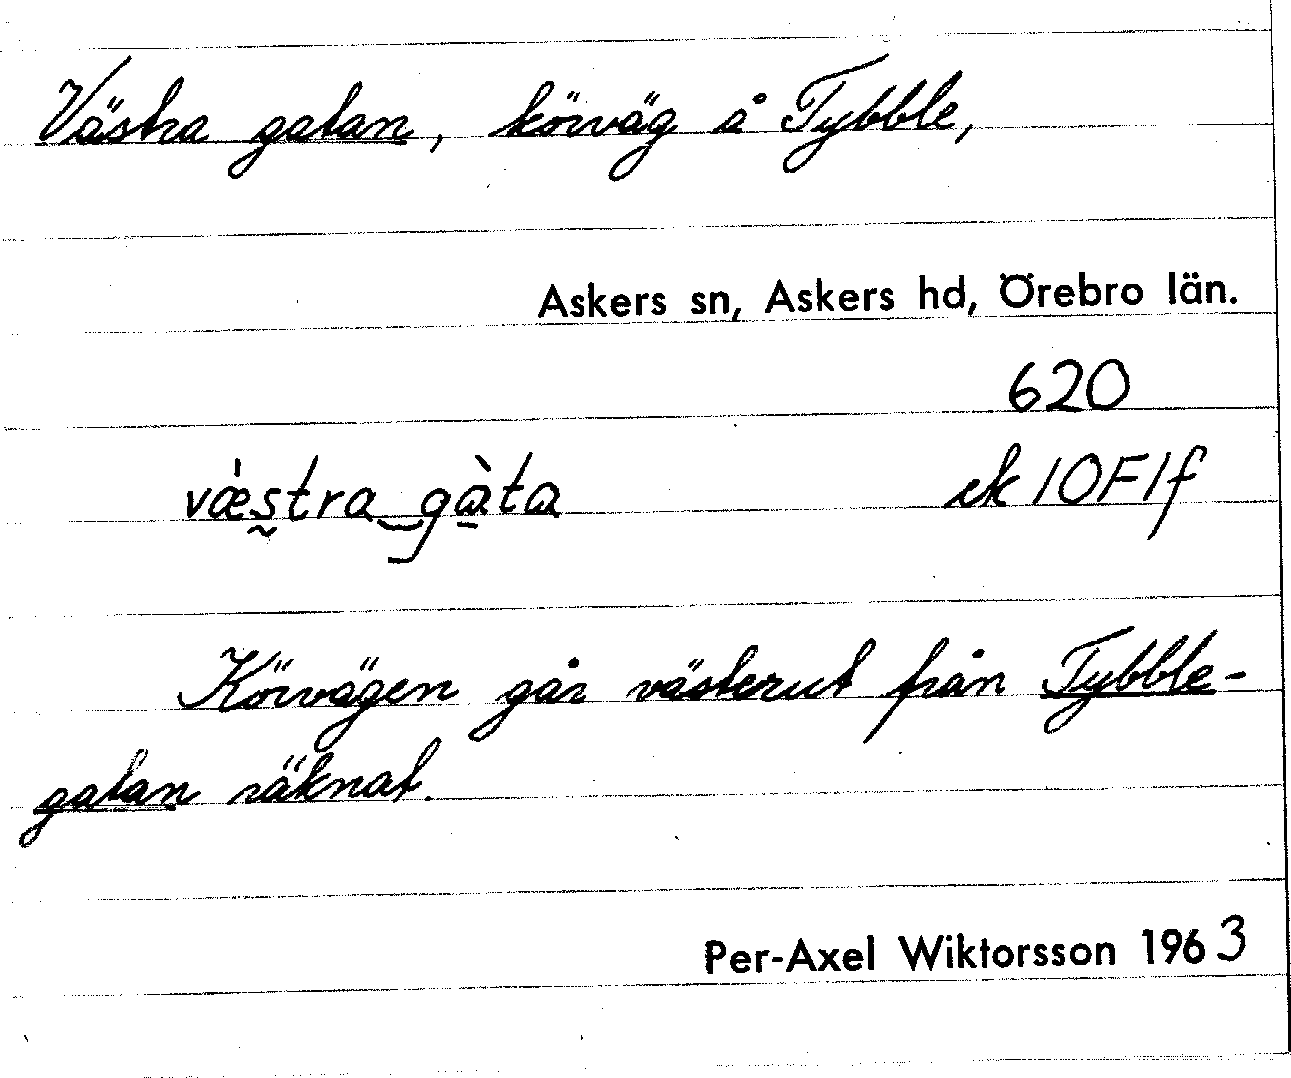 Västra gatan, körväg å Tybble,
Askers sn, Askers hd, Örebro län.
620
væ̀stra gàta ek 10F1f
Körvägen går västerut från Tybble-
gatan räknat.
Per-Axel Wiktorsson 1963